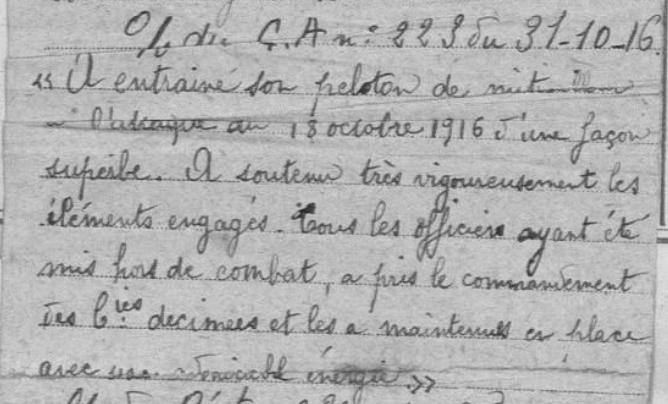 O/ du C.A n° 223 du 31-10-16.
« A entrainé son peloton de mit
l'attaque du 18 octobre 1916 d'une façon
superbe. A soutenu très vigoureusement les
éléments engagés. Tous les officiers ayant été
mis hors de combat, a pris le commandement
des Cies decimees et les a maintenues en place
avec une énergie »